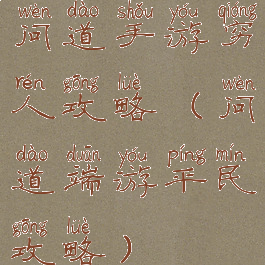 wèn dào shǒu yóu qióng
问道手游穷
rén gōng lüè wèn
人攻略（问
dào duān yóu píng mín
道端游平民
gōng lüè
攻略）